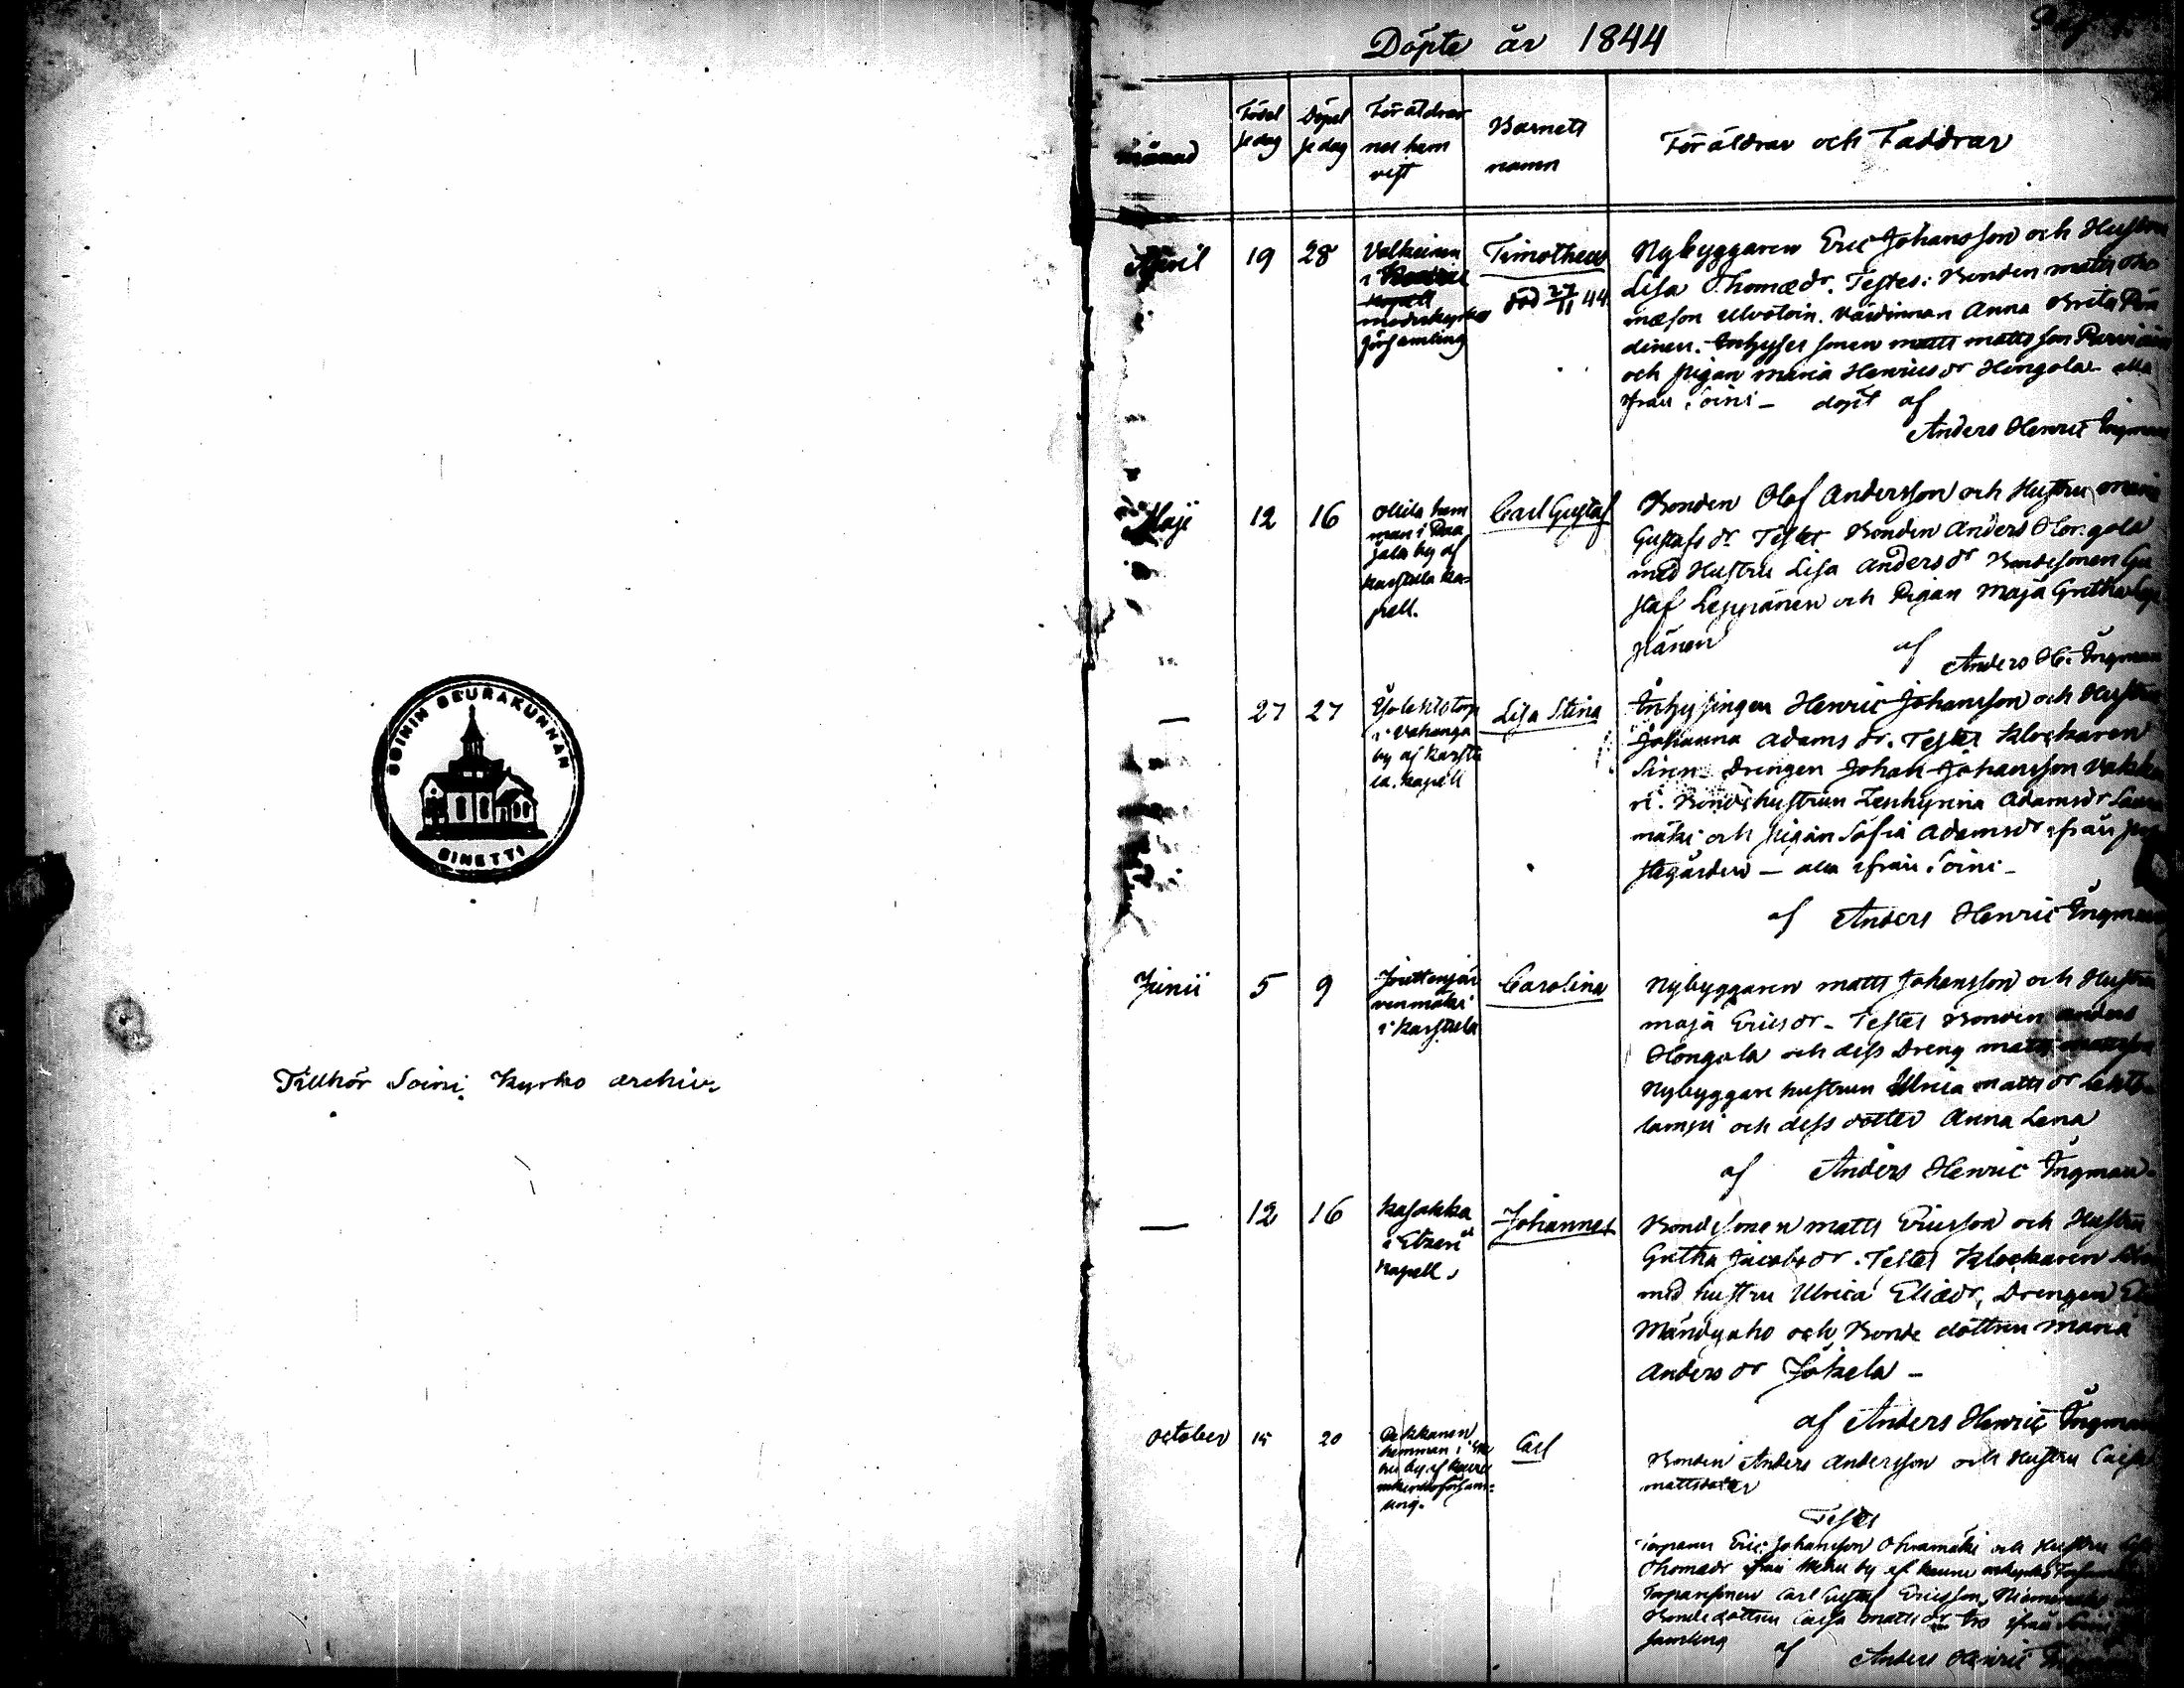 SOININ SEURAKUNNAN
SINETTI
Tillhör Soini Kyrko archiv
Döpte år 1844
månad
Födel
se dag
Döpel
se dag
Föräldrar
nas hem
vist
Barnets
namn
Föräldrar och Faddrar
April 19 28
Valkeinen
i
moderkyrko
församling
Timotheus
död 27/11 44
Nybyggaren Eric Johansson och Hustru
Lisa Thomædr. Testes: Bonden Matts Tho
mæson Ulvotoin. Värdinnan Anna Brita Pön
dinen. Inhyses sonen Matts Mattsson
och pigan Maria Henricsdr Hongola alla
ifrån Soini – döpt af
Anders Henric Ingman
Maji 12 16
Ollila hem
man i Raa
jala by af
Karstula ka-
pell.
Carl Gustaf
Bonden Olof Andersson och Hustru Maria
Gustafsdr. Testes Bonden Anders Hongola
med Hustru Lisa Andersdr Bondesonen Gu
staf Leppänen och Pigan Maja Gretha Lep
pänen
af Anders H. Ingman
— 27 27
i Vahanga
by af Karstu
la kapell
Lisa Stina
Inhysingen Henric Johansson och Hustru
Johanna Adamsdr. Testes Klockaren
Siren. Drengen Johan Johansson Vakka
ri. Bondehustrun Zephyrina Adamsdr
mäki och pigan Sofia Adamsdr ifrån pre
stegården — alla ifrån Soini –
af Anders Henric Ingman
Junii 5 9
venmäki
i Karstula
Carolina
Nybyggaren Matts Johansson och Hustru
Maja Ericsdr – Testes Bonden Anders
Hongola och dess Dreng Matts Mattsson
Nybyggare hustrun Ulrica Mattsdr Lehto
lampi och dess dotter Anna Lena
af Anders Henric Ingman
— 12 16
Kasakka
i Etseri
kapell.
Johannes
Bondesonen Matts Ericsson och Hustru
Gretha Jacobsdr. Testes Klockaren
med hustru Ulrica Eliædr, Drengen
Mändyaho och Bonde dottren Maria
Andersdr Jokela –
af Anders Henric Ingman
October 15 20
Pekkanen
hemman i
by af Keuru
moderkyrkoförsam-
ling.
Carl
Bonden Anders Andersson och Hustru Caisa
Mattsdotter
Testes
Torparen Eric Johansson och Hustru Lisa
Thomædr ifrån by af Keuru moderkyrko
Torparesonen Carl Gustaf Ericsson
Bondedottren Caisa Mattsdr ifrån
samling af
Anders Henric